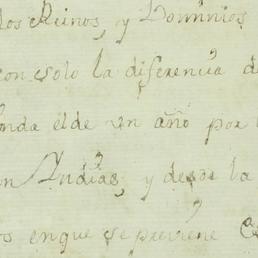 los Reinos, y Dominios
con solo la diferencia de
onda él de un año por
en Yndias, y desde la
os en que se previene